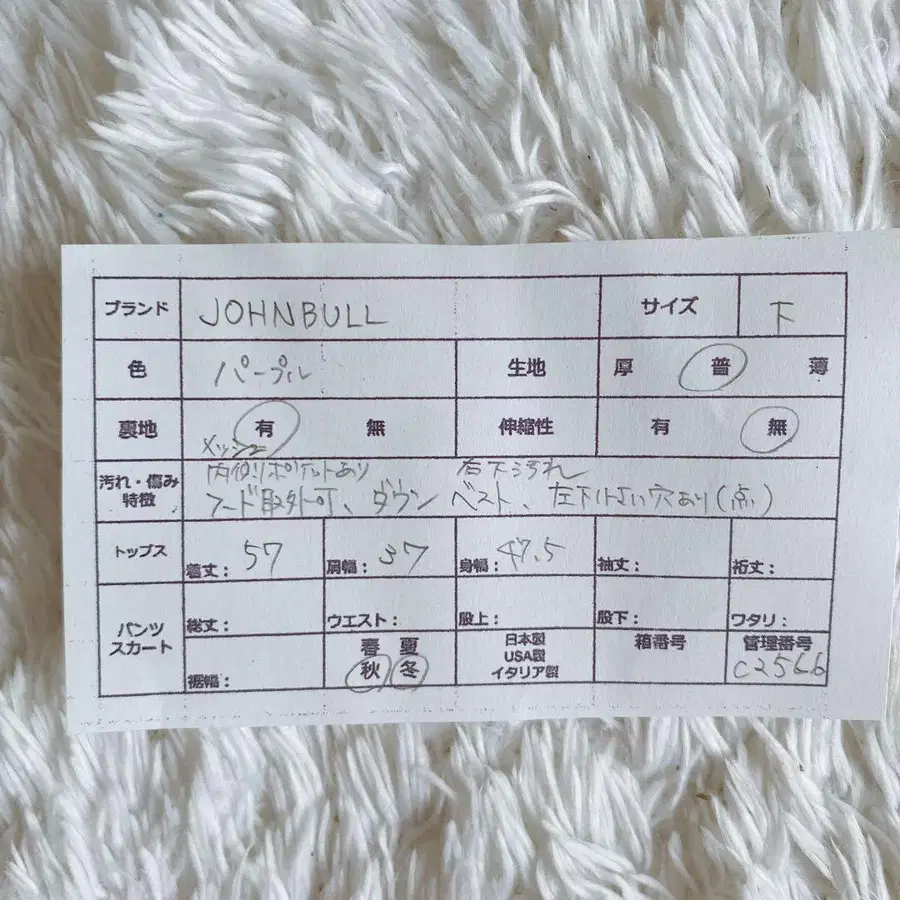 ブランド JOHNBULL サイズ 下
色 パープル 生地 厚 普 薄
裏地 有 無 伸縮性 有 無
メッシュ
汚れ・傷み 内側ポケットあり 右下汚れ
特徴 フード取外可、ダウン ベスト、左下小さい穴あり(点)
トップス 着丈: 57 肩幅: 37 身幅: 47.5 袖丈: 裄丈:
パンツ
スカート
総丈: ウエスト: 股上: 股下: ワタリ:
裾幅:
春 夏
秋 冬
日本製
USA製
イタリア製
箱番号
管理番号
C2566